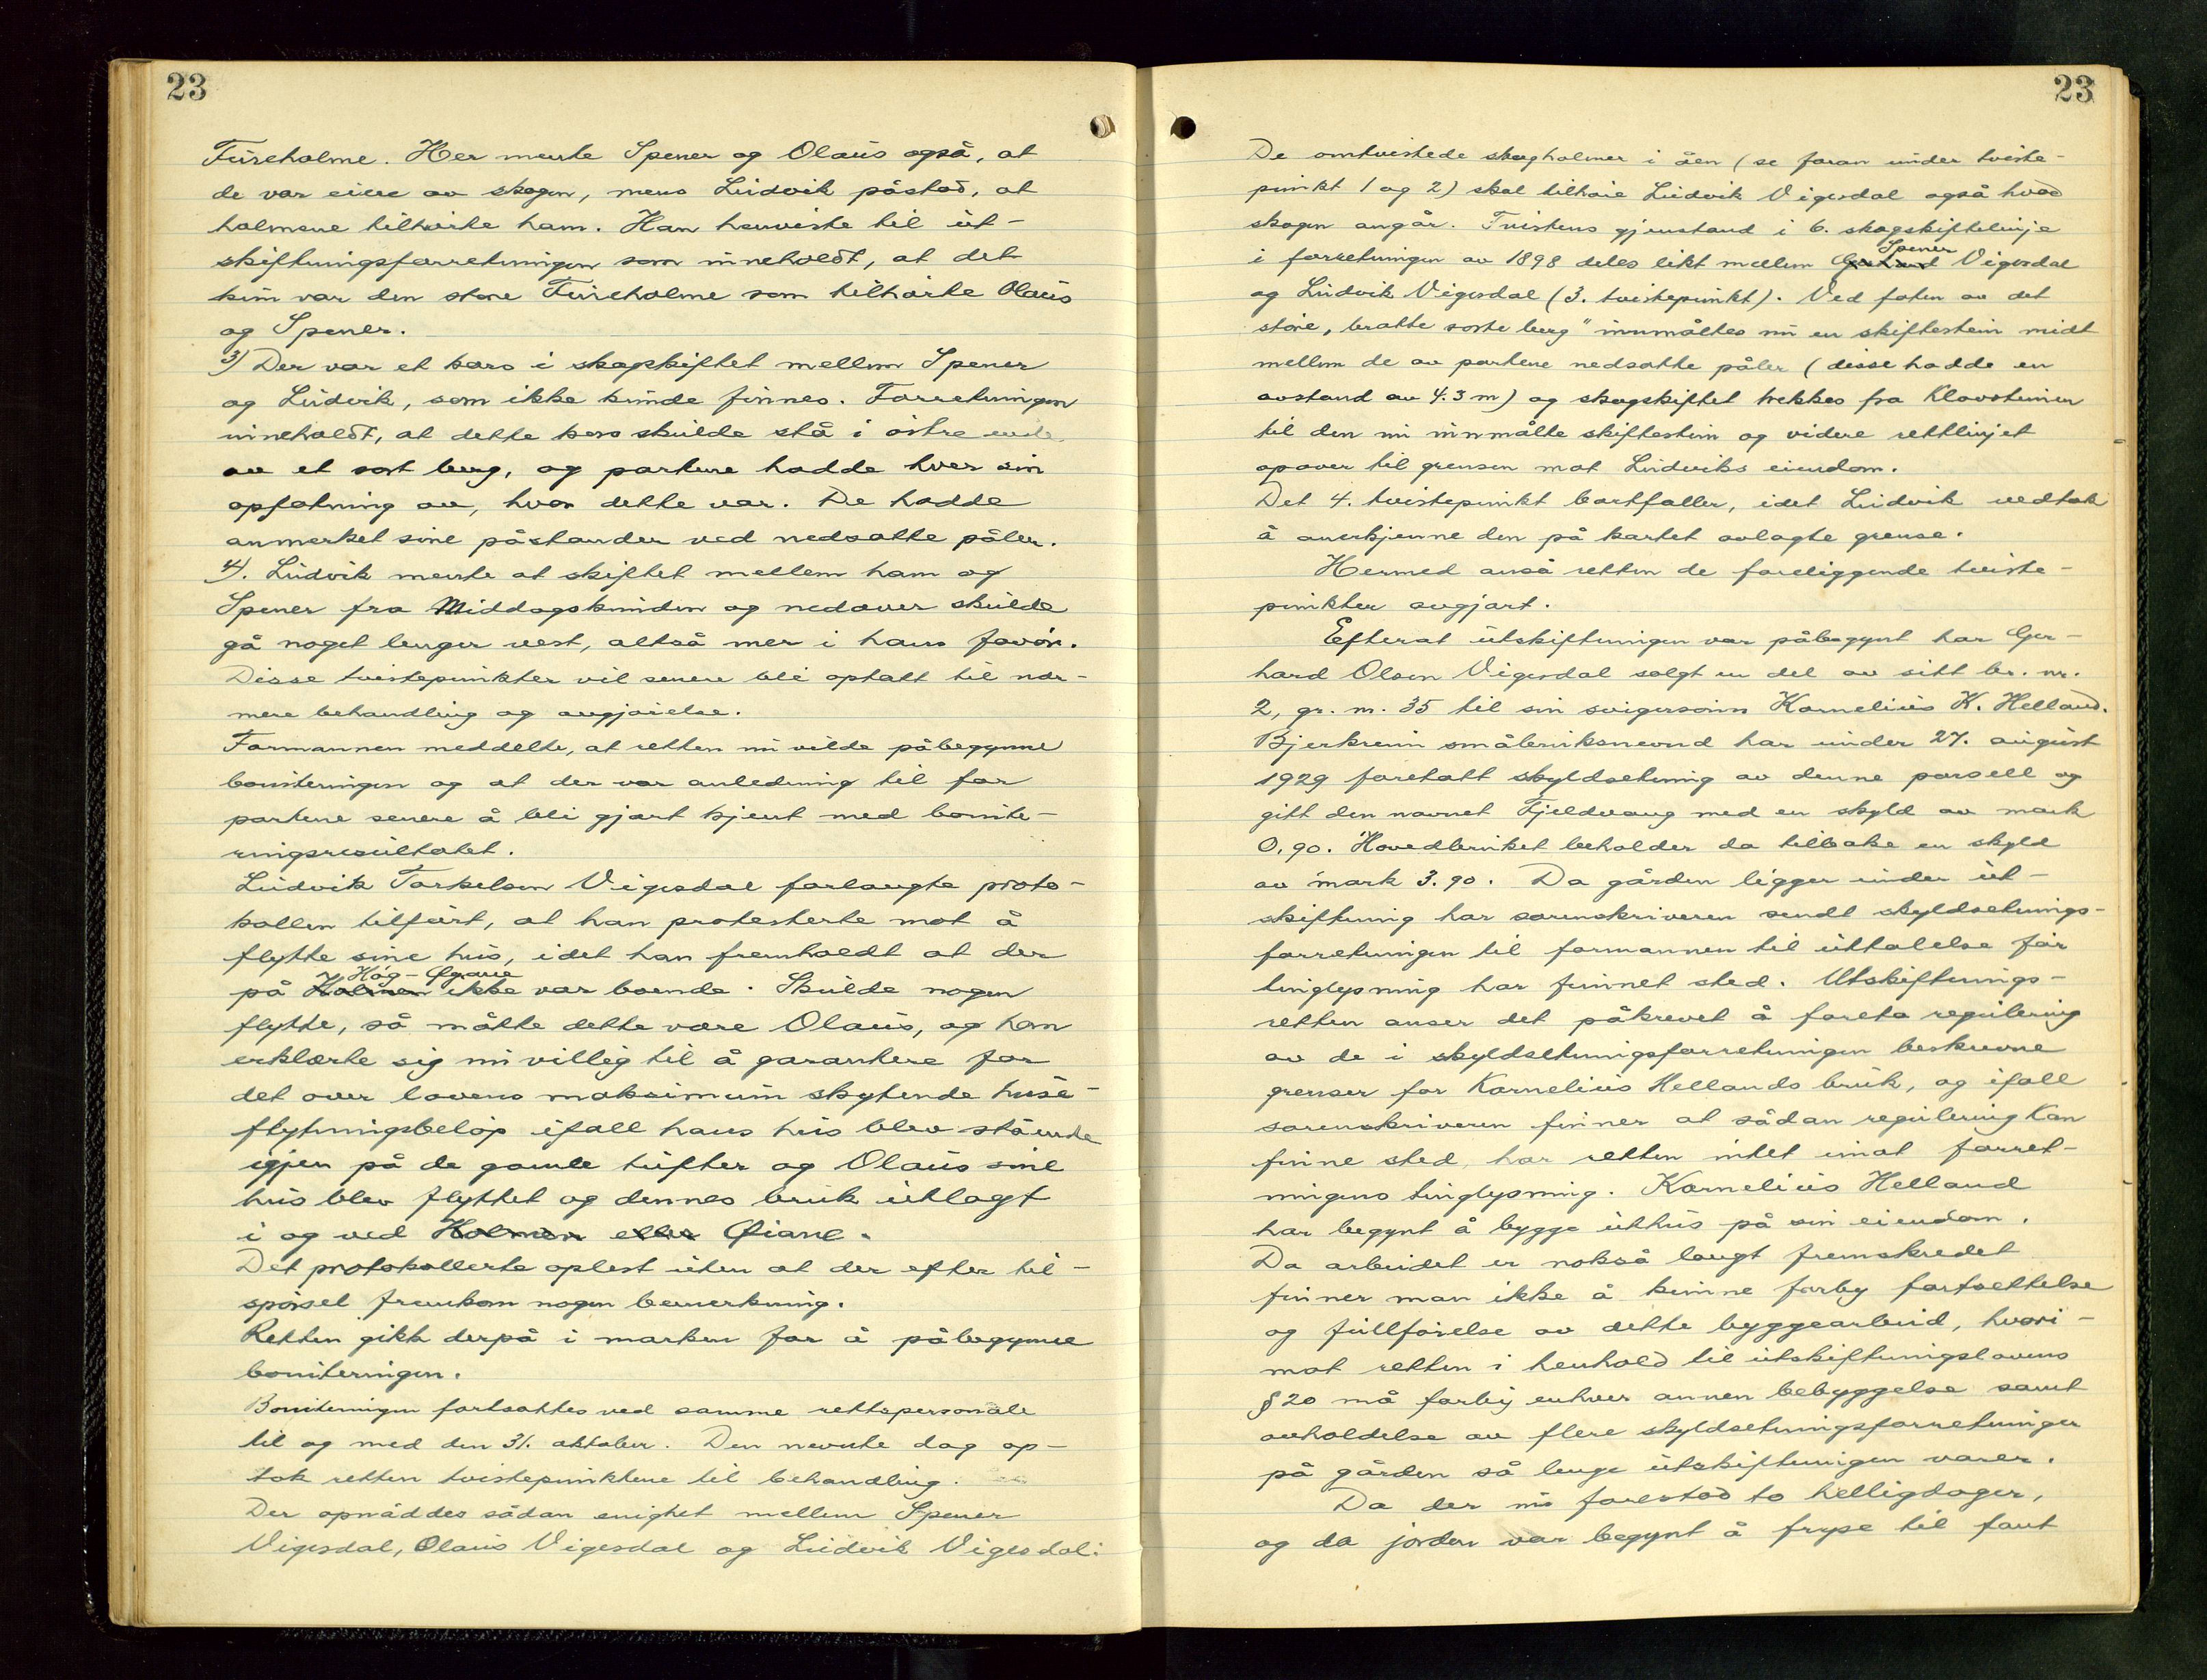 23
Fureholme. Her mente Spener og Olaus også, at
de var eiere av skogen, mens Ludvik påstod, at
holmene tilhørte ham. Han henviste til ut-
skiftningsforretningen som inneholdt, at det
kun var den store Fureholme som tilhørte Olaus
og Spener.
3) Der var et kors i skogskiftet mellem Spener
og Ludvik, som ikke kunde finnes. Forretningen
inneholdt, at dette kors skulde stå i østre ende
av et sort berg, og partene hadde hver sin
opfatning av, hvor dette var. De hadde
anmerket sine påstander ved nedsatte påler.
4). Ludvik mente at skiftet mellem ham og
Spener fra Middagsknuden og nedover skulde
gå noget lenger vest, altså mer i hans favør.
Disse tvistepunkter vil senere bli optatt til nær-
mere behandling og avgjørelse.
Formannen meddelte, at retten nu vilde påbegynne
boniteringen og at der var anledning til for
partene senere å bli gjort kjent med bonite-
ringsresultatet.
Ludvik Torkelsen Vigesdal forlangte proto-
kollen tilført, at han protesterte mot å
flytte sine hus, idet han fremholdt at der
Høg-Øyane
på Holmen ikke var boende. Skulde nogen
flytte, så måtte dette være Olaus, og han
erklærte sig nu villig til å garantere for
det over lovens maksimum skytende huse-
flytningsbeløp ifall hans hus blev stående
igjen på de gamle tufter og Olaus sine
hus blev flyttet og dennes bruk utlagt
i og ved Holmen eller Øiane.
Det protokollerte oplest uten at der efter til-
spørsel fremkom nogen bemerkning.
Retten gikk derpå i marken for å påbegynne
boniteringen.
Boniteringen fortsattes ved samme rettspersonale
til og med den 31. oktober. Den nevnte dag op-
tok retten tvistepunktene til behandling.
Der opnåddes sådan enighet mellem Spener
Vigesdal, Olaus Vigesdal og Ludvik Vigesdal:
23
De omtvistede skogholmer i åen (se foran under tviste-
punkt 1 og 2) skal tilhøre Ludvik Vigesdal også hvad
skogen angår. Tvistens gjenstand i 6. skogskiftelinje
Spener
i forretningen av 1898 deles likt mellem Gerhard Vigesdal
og Ludvik Vigesdal (3. tvistepunkt). Ved foten av det
store, bratte sorte berg" innmåltes nu en skiftestein midt
mellem de av partene nedsatte påler (disse hadde en
avstand av 4.3 m) og skogskiftet trekkes fra Klovsteinen
til den nu innmålte skiftestein og videre rettlinjet
opover til grensen mot Ludviks eiendom.
Det 4. tvistepunkt bortfaller, idet Ludvik vedtok
å anerkjenne den på kartet avlagte grense.
Hermed anså retten de foreliggende tviste-
punkter avgjort.
Efterat utskiftningen var påbegynt har Ger-
hard Olsen Vigesdal solgt en del av sitt br. nr.
2, gr. nr. 35 til sin svigersønn Kornelius K. Helland.
Bjerkreim småbruksnevnd har under 27. august
1929 foretatt skyldsetning av denne parsell og
gitt den navnet Fjeldvang med en skyld av mark
0.90. Hovedbruket beholder da tilbake en skyld
av mark 3.90. Da gården ligger under ut-
skiftning har sorenskriveren sendt skyldsetnings-
forretningen til formannen til uttalelse før
tinglysning har funnet sted. Utskiftnings-
retten anser det påkrevet å foreta regulering
av de i skyldsetningsforretningen beskrevne
grenser for Kornelius Hellands bruk, og ifall
sorenskriveren finner at sådan regulering kan
finne sted, har retten intet imot forret-
ningens tinglysning. Kornelius Helland
har begynt å bygge uthus på sin eiendom.
Da arbeidet er nokså langt fremskredet
finner man ikke å kunne forby fortsettelse
og fullførelse av dette byggearbeid, hvori-
mot retten i henhold til utskiftningslovens
§ 20 må forby enhver annen bebyggelse samt
avholdelse av flere skyldsetningsforretninger
på gården så lenge utskiftningen varer.
Da der nu forestod to helligdager,
og da jorden var begynt å fryse til fant